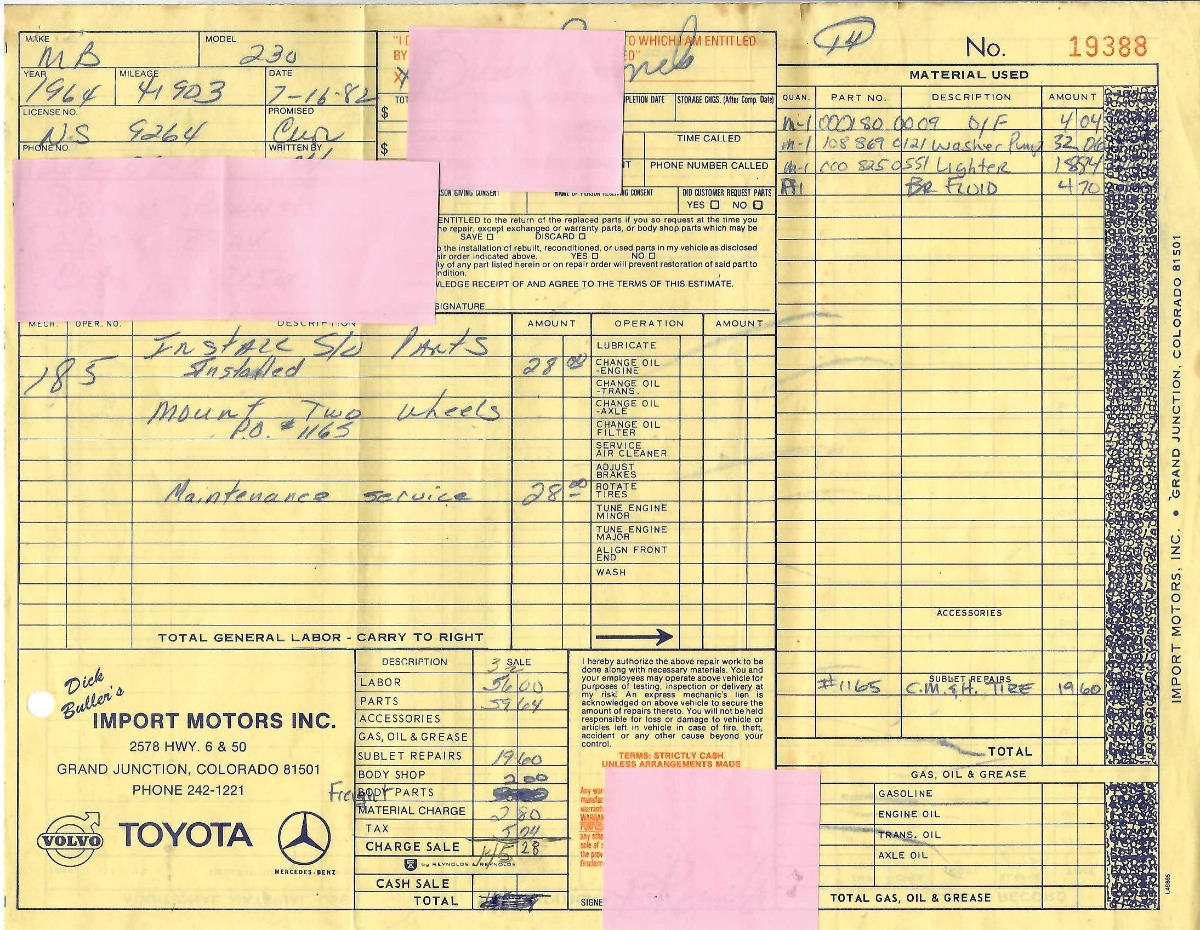 MAKE MB MODEL 230
YEAR 1964 MILEAGE 41903 DATE 7-16-82
LICENSE NO. NS 9264 PROMISED
PHONE NO. WRITTEN BY
"I D TO WHICH I AM ENTITLED
BY ED"
X
$
$
COMPLETION DATE STORAGE CHGS. (After Comp. Date)
TIME CALLED
PHONE NUMBER CALLED
DID CUSTOMER REQUEST PARTS
YES □ NO □
ENTITLED to the return of the replaced parts if you so request at the time you
he repair, except exchanged or warranty parts, or body shop parts which may be
SAVE □ DISCARD □
o the installation of rebuilt, reconditioned, or used parts in my vehicle as disclosed
air order indicated above. YES □ NO □
ly of any part listed herein or on repair order will prevent restoration of said part to
ndition.
WLEDGE RECEIPT OF AND AGREE TO THE TERMS OF THIS ESTIMATE.
SIGNATURE
14 No. 19388
MATERIAL USED
QUAN. PART NO. DESCRIPTION AMOUNT
m-1 000180 0009 O/F 4 04
m-1 108 869 0121 Washer Pump 32 06
m-1 000 825 0551 Lighter 18 84
BR FLUID 4 70
ACCESSORIES
SUBLET REPAIRS
#1165 C.M.&H. TIRE 19 60
TOTAL
GAS, OIL & GREASE
GASOLINE
ENGINE OIL
TRANS. OIL
AXLE OIL
TOTAL GAS, OIL & GREASE
IMPORT MOTORS, INC. • GRAND JUNCTION, COLORADO 81501
MECH. OPER. NO. DESCRIPTION AMOUNT OPERATION AMOUNT
Install S/O Parts
185 Installed 28 00
Mount Two Wheels
P.O. #1165
Maintenance service 28 00
LUBRICATE
CHANGE OIL
-ENGINE
CHANGE OIL
-TRANS.
CHANGE OIL
-AXLE
CHANGE OIL
FILTER
SERVICE
AIR CLEANER
ADJUST
BRAKES
ROTATE
TIRES
TUNE ENGINE
MINOR
TUNE ENGINE
MAJOR
ALIGN FRONT
END
WASH
TOTAL GENERAL LABOR - CARRY TO RIGHT
Dick
Buller's
IMPORT MOTORS INC.
2578 HWY. 6 & 50
GRAND JUNCTION, COLORADO 81501
PHONE 242-1221
VOLVO TOYOTA MERCEDES-BENZ
DESCRIPTION SALE
LABOR 56 00
PARTS 59 64
ACCESSORIES
GAS, OIL & GREASE
SUBLET REPAIRS 19 60
BODY SHOP 2 00
Freight BODY PARTS
MATERIAL CHARGE 2 80
TAX 5 24
CHARGE SALE 145 28
by REYNOLDS & REYNOLDS
CASH SALE
TOTAL
I hereby authorize the above repair work to be
done along with necessary materials. You and
your employees may operate above vehicle for
purposes of testing, inspection or delivery at
my risk. An express mechanic's lien is
acknowledged on above vehicle to secure the
amount of repairs thereto. You will not be held
responsible for loss or damage to vehicle or
articles left in vehicle in case of fire, theft,
accident or any other cause beyond your
control.
TERMS: STRICTLY CASH
UNLESS ARRANGEMENTS MADE
SIGNE